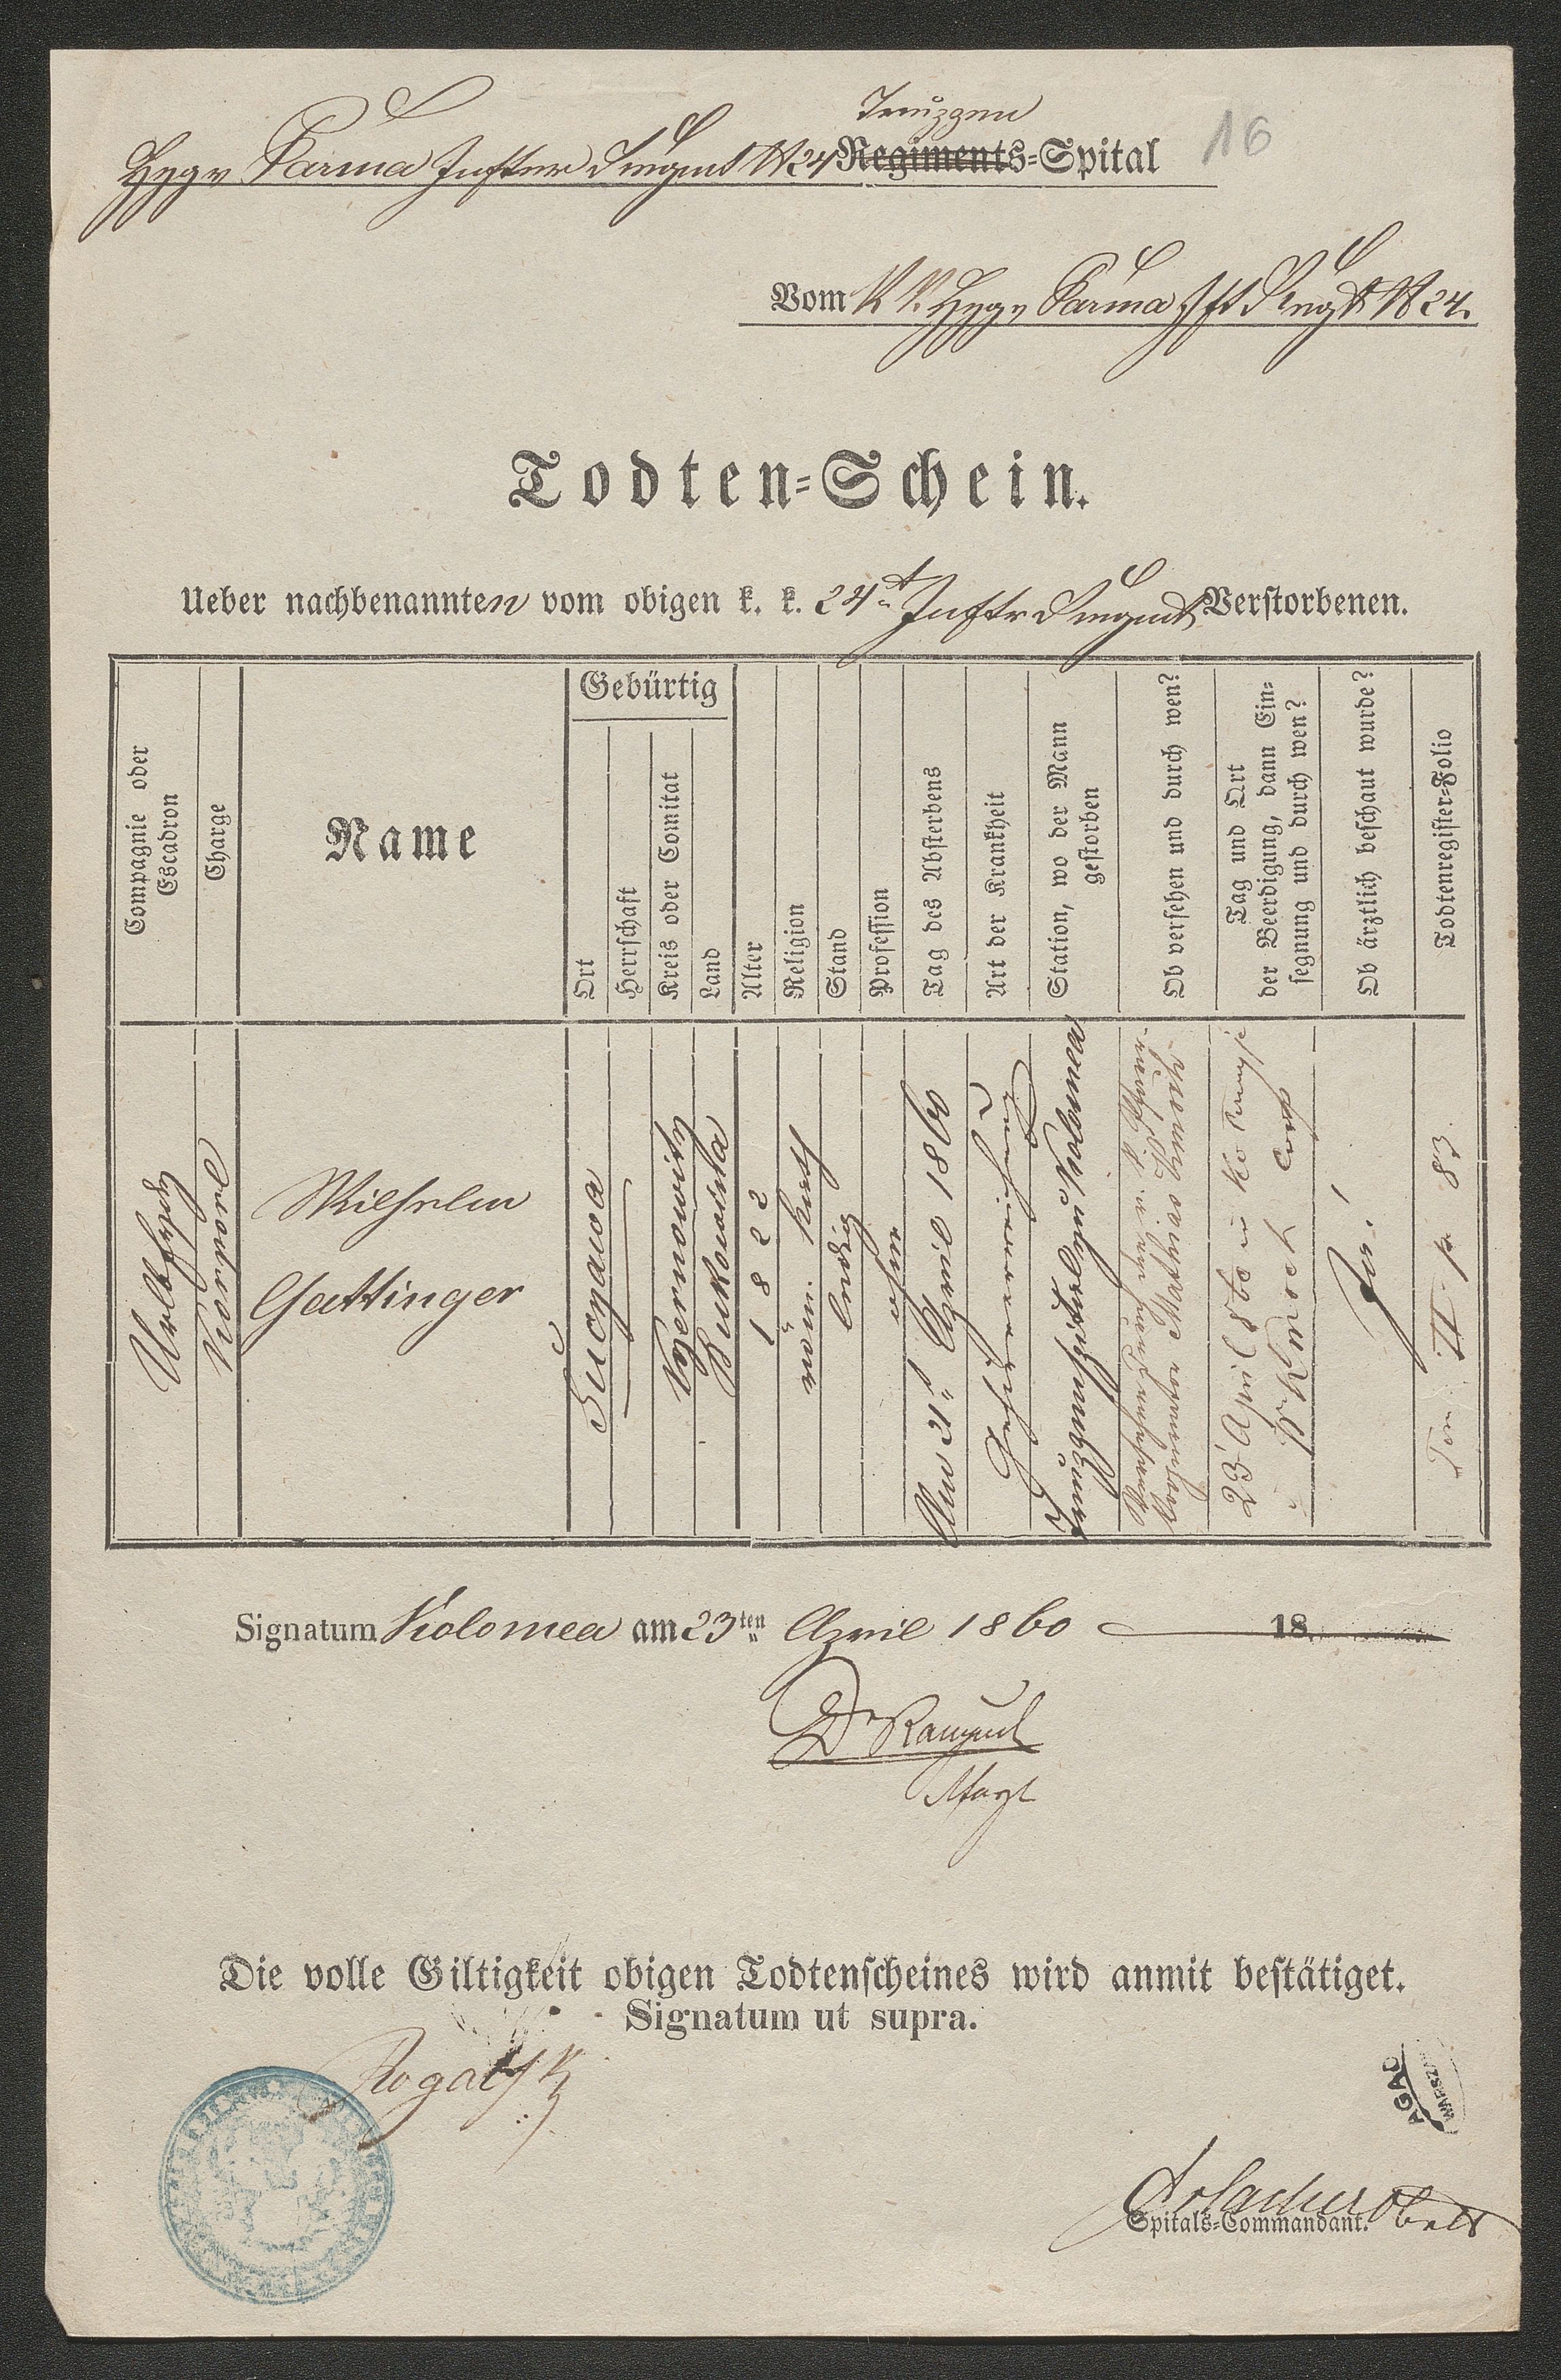 Truppen
Herzog Parma Infter Regmt N 24 Regiments-Spital
16
Vom K. K. Herzog Parma Ift Regt N 24.
Todten-Schein.
Ueber nachbenannten vom obigen k. k. 24t Inftr Regmt Verstorbenen.
Compagnie oder
Escadron
Charge
Name
Gebürtig
Ort
Herrschaft
Kreis oder Comitat
Land
Alter
Religion
Stand
Profession
Tag des Absterbens
Art der Krankheit
Station, wo der Mann
gestorben
Ob versehen und durch wen?
Tag und Ort
der Beerdigung, dann Ein-
segnung und durch wen?
Ob ärztlich beschaut wurde?
Todtenregister-Folio
Korporl
Wilhelm
Gattinger
Suczawa
Czernowitz
Bukowina
1822
röm. kath
ledig
ohne
Am 21t April 1860
Gehirnerweichung
Truppenspital zu Kolomea
23 April 860 in Ko
Ja!
Tom. II pa 83.
Signatum Kolomea am 23ten April 1860 18
Dr
Die volle Giltigkeit obigen Todtenscheines wird anmit bestätiget.
Signatum ut supra.
AGAD
Spitals-Commandant.